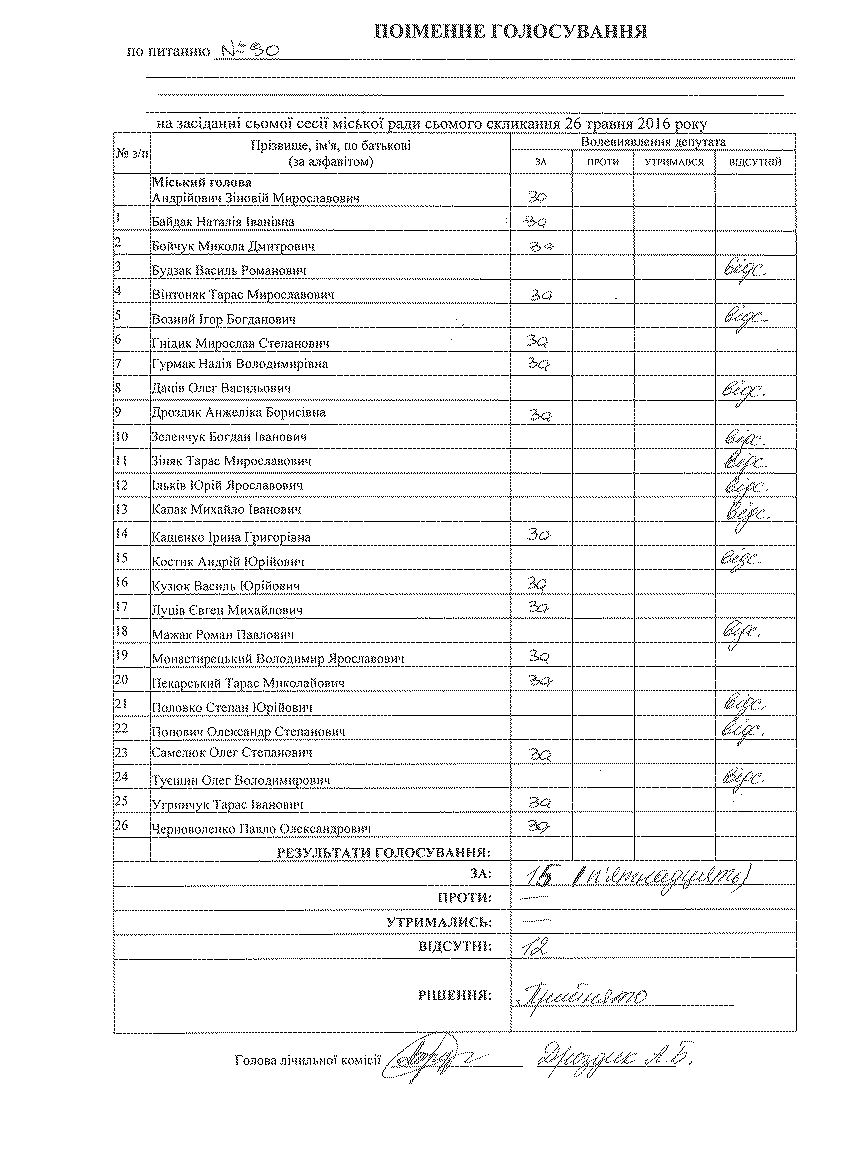 ПОІМЕННЕ ГОЛОСУВАННЯ
по питанню № 90
на засіданні сьомої сесії міської ради сьомого скликання 26 травня 2016 року
№ з/п Прізвище, ім'я, по батькові (за алфавітом) Волевиявлення депутата
ЗА ПРОТИ УТРИМАВСЯ ВІДСУТНІЙ
Міський голова
Андрійович Зіновій Мирославович за
1 Байдак Наталія Іванівна за
2 Бойчук Микола Дмитрович за
3 Будзак Василь Романович відс.
4 Вінтоняк Тарас Мирославович за
5 Возний Ігор Богданович відс.
6 Гнідик Мирослав Степанович за
7 Гурмак Надія Володимирівна за
8 Даців Олег Васильович відс.
9 Дроздик Анжеліка Борисівна за
10 Зеленчук Богдан Іванович відс.
11 Зіняк Тарас Мирославович відс.
12 Ільків Юрій Ярославович відс.
13 Капак Михайло Іванович відс.
14 Кащенко Ірина Григорівна за
15 Костик Андрій Юрійович відс.
16 Кузюк Василь Юрійович за
17 Луців Євген Михайлович за
18 Мажак Роман Павлович відс.
19 Монастирецький Володимир Ярославович за
20 Пекарський Тарас Миколайович за
21 Половко Степан Юрійович відс.
22 Попович Олександр Степанович відс.
23 Самелюк Олег Степанович за
24 Туєшин Олег Володимирович відс.
25 Угринчук Тарас Іванович за
26 Черноволенко Павло Олександрович за
РЕЗУЛЬТАТИ ГОЛОСУВАННЯ:
ЗА: 15 (п'ятнадцять)
ПРОТИ: —
УТРИМАЛИСЬ: —
ВІДСУТНІ: 12
РІШЕННЯ: Прийнято
Голова лічильної комісії Дроздик А.Б.